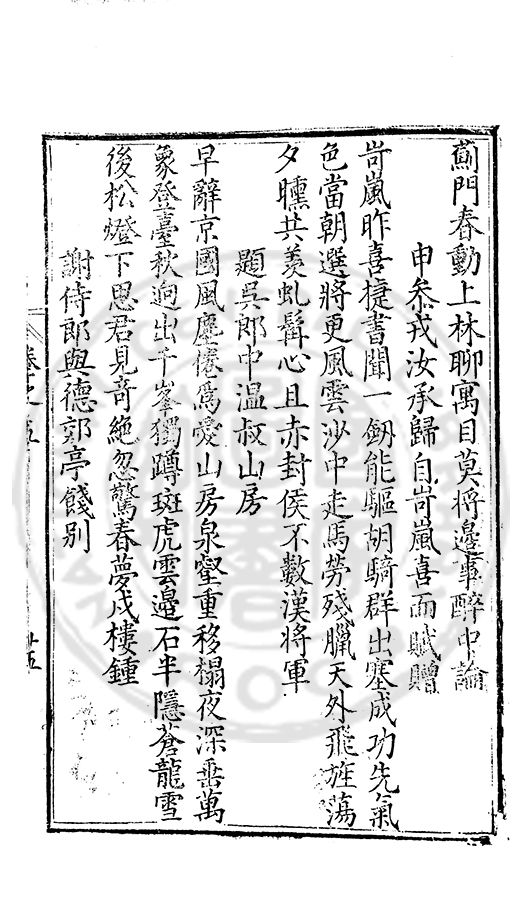 薊門春動上林聊寓目莫將邊事醉中論
申叅戎汝承歸自岢嵐喜而賦贈
岢嵐昨喜捷書聞一劔能驅胡騎群出塞成功先氣
色當朝選將更風雲沙中走馬勞殘臘天外飛旌蕩
夕曛共羡虬髯心且赤封侯不數漢將軍
題吳郎中温叔山房
早辭京國風塵倦爲愛山房泉壑重移榻夜深垂萬
象登臺秋逈出千峯獨蹲斑虎雲邉石半隱蒼龍雪
後松燈下思君見奇絶忽驚春夢戍樓鍾
謝侍郎與德郭亭餞别
廿五